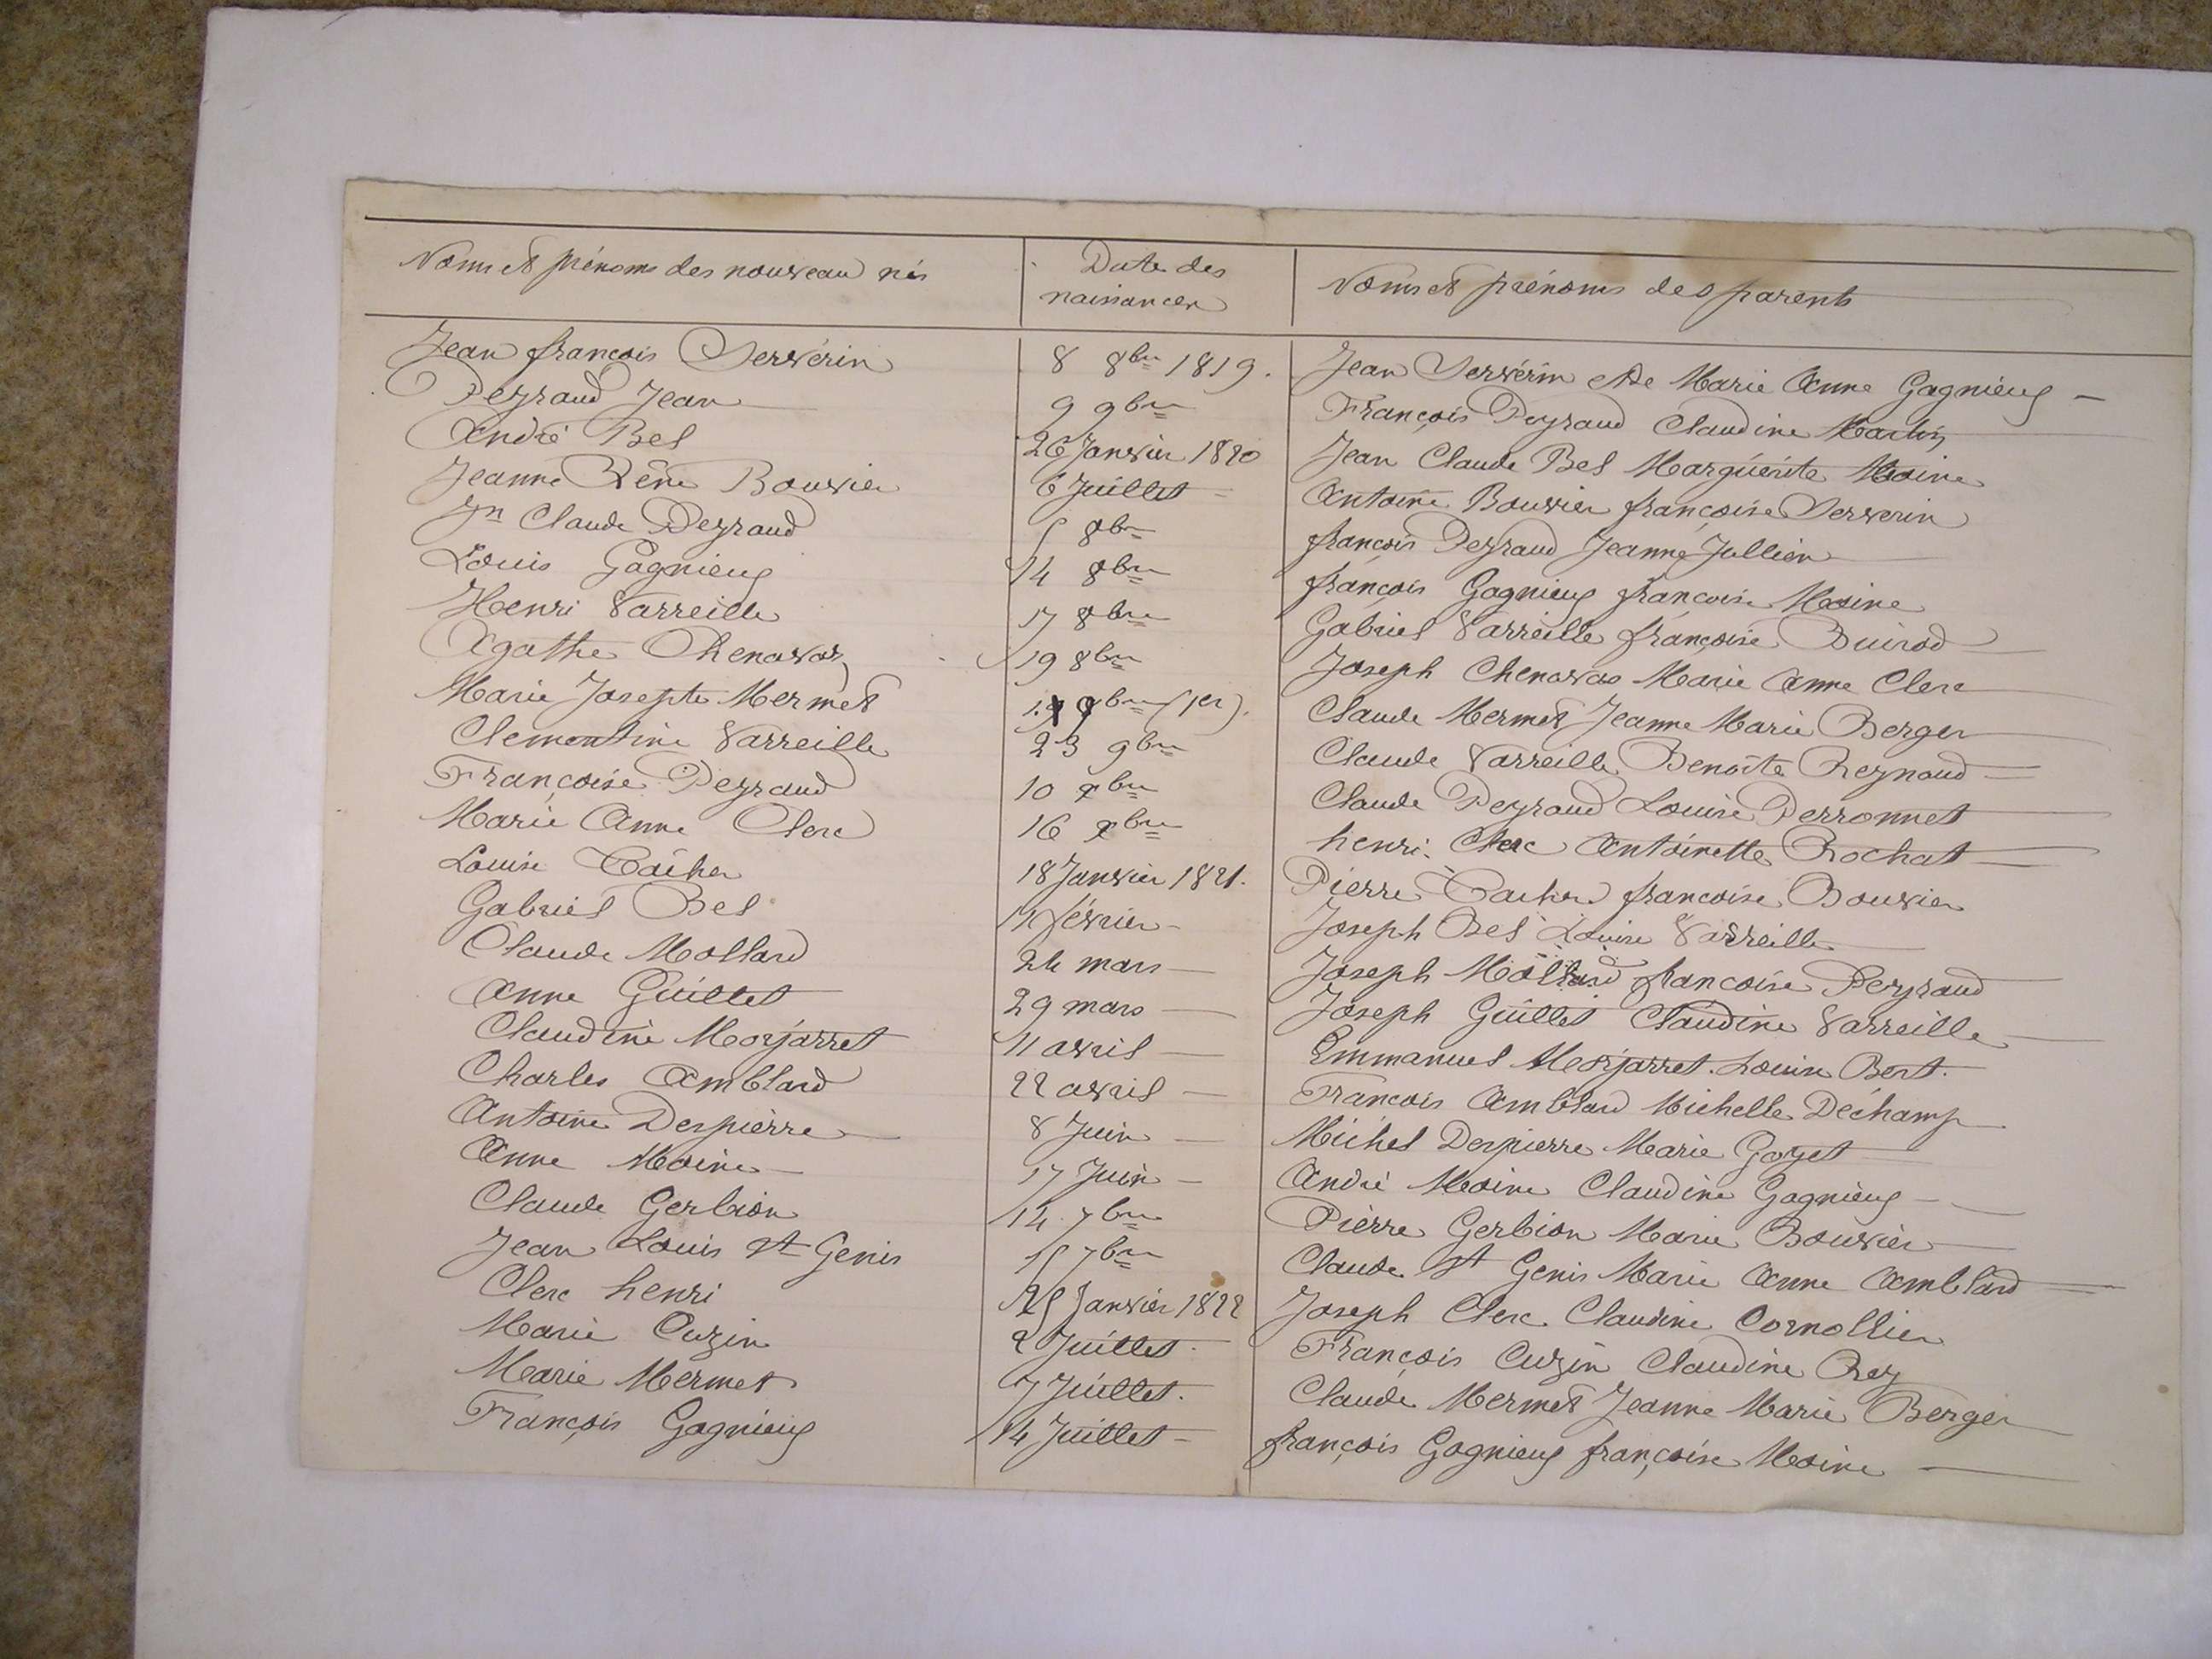 Noms et prénoms des nouveau nés | Date des naissances | Noms et prénoms des parents
Jean françois Serverin | 8 8bre 1819. | Jean Serverin et de Marie Anne Gagnieug
Peyraud Jean | 9 9bre | François Peyraud Claudine Martin
André Bel | 26 Janvier 1820 | Jean Claude Bel Marguérite Moine
Jeanne Rêne Bouvier | 6 Juillet | Antoine Bouvier françoise Serverin
Jn Claude Peyraud | 5 8bre | françois Peyraud Jeanne Jullien
Louis Gagnieug | 14 8bre | françois Gagnieug françoise Moine
Henri Varreille | 17 8bre | Gabriel Varreille françoise Buirod
Agathe Chenavas | 19 8bre | Joseph Chenavas Marie Anne Clerc
Marie Josepte Mermet | 9bre (1er). | Claude Mermet Jeanne Marie Berger
Clementine Varreille | 23 9bre | Claude Varreille Benoîte Reynaud
Françoise Peyraud | 10 xbre | Claude Peyraud Louise Perronnet
Marie Anne Clerc | 16 xbre | henri Clerc Antoinette Rochat
Louise | 18 Janvier 1821. | Pierre françoise Bouvier
Gabriel Bel | 11 février | Joseph Bel Louise Varreille
Claude Mollard | 24 mars | Joseph Mollard francoise Peyraud
Anne Guillet | 29 mars | Joseph Guillet Claudine Varreille
Claudine Morjarret | 11 avril | Emmanuel Morjarret. Louise Bert.
Charles Amblard | 22 avril | Francois Amblard Michelle Déchamp
Antoine Despierre | 8 Juin | Michel Despierre Marie Goyet
Anne Moine | 17 Juin | André Moine Claudine Gagnieug
Claude Gerbion | 14 7bre | Pierre Gerbion Marie Bouvier
Jean Louis St Genis | 15 7bre | Claude St Genis Marie Anne Amblard
Clerc henri | 25 Janvier 1822 | Joseph Clerc Claudine Cornollier
Marie Cuzin | 2 Juillet. | François Cuzin Claudine Rey
Marie Mermet | 7 Juillet. | Claude Mermet Jeanne Marie Berger
François Gagnieug | 14 Juillet | françois Gagnieug françoise Moine